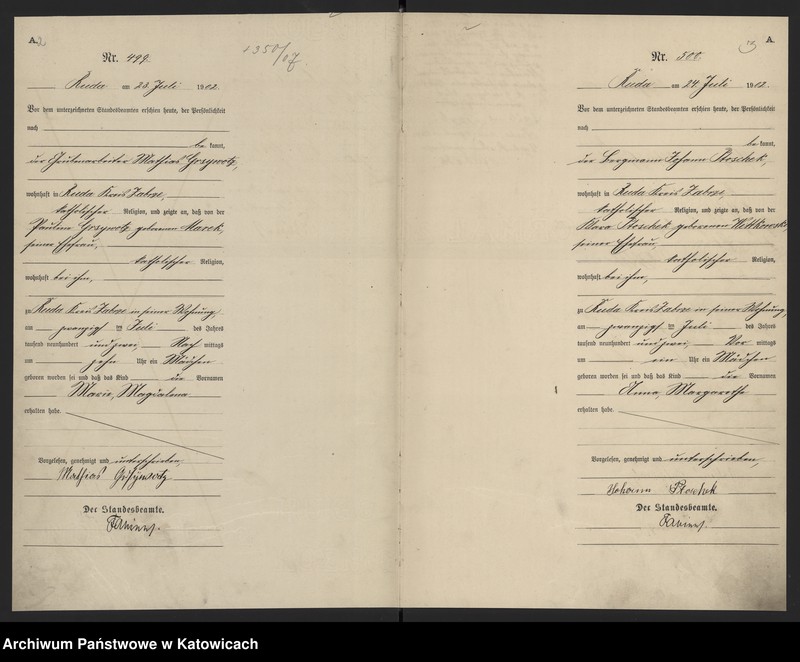 A.
Nr. 499.
1350/07
Ruda am 23. Juli 1902.
Vor dem unterzeichneten Standesbeamten erschien heute, der Persönlichkeit
nach
be kannt,
der Mathias Grzywotz,
wohnhaft in Ruda Kreis Zabrze,
katholischer Religion, und zeigte an, daß von der
Pauline Grzywotz geborenen Marek,
seiner Ehefrau,
katholischer Religion,
wohnhaft bei ihm,
zu Ruda Kreis Zabrze in seiner Wohnung,
am zwanzigsten Juli des Jahres
tausend neunhundert und zwei, Nach mittags
um zehn Uhr ein Mädchen
geboren worden sei und daß das Kind die Vornamen
Marie, Magdalena
erhalten habe.
Vorgelesen, genehmigt und unterschrieben,
Mathias Grzywotz
Der Standesbeamte.
A.
Nr. 500.
Ruda am 24. Juli 1902.
Vor dem unterzeichneten Standesbeamten erschien heute, der Persönlichkeit
nach
be kannt,
der Bergmann Johann Ploschek,
wohnhaft in Ruda Kreis Zabrze,
katholischer Religion, und zeigte an, daß von der
Ploschek geborenen
seiner Ehefrau,
katholischer Religion,
wohnhaft bei ihm,
zu Ruda Kreis Zabrze in seiner Wohnung,
am zwanzigsten Juli des Jahres
tausend neunhundert und zwei, Vor mittags
um ein Uhr ein Mädchen
geboren worden sei und daß das Kind die Vornamen
Anna, Margarethe
erhalten habe.
Vorgelesen, genehmigt und unterschrieben,
Johann Ploschek
Der Standesbeamte.
Archiwum Państwowe w Katowicach